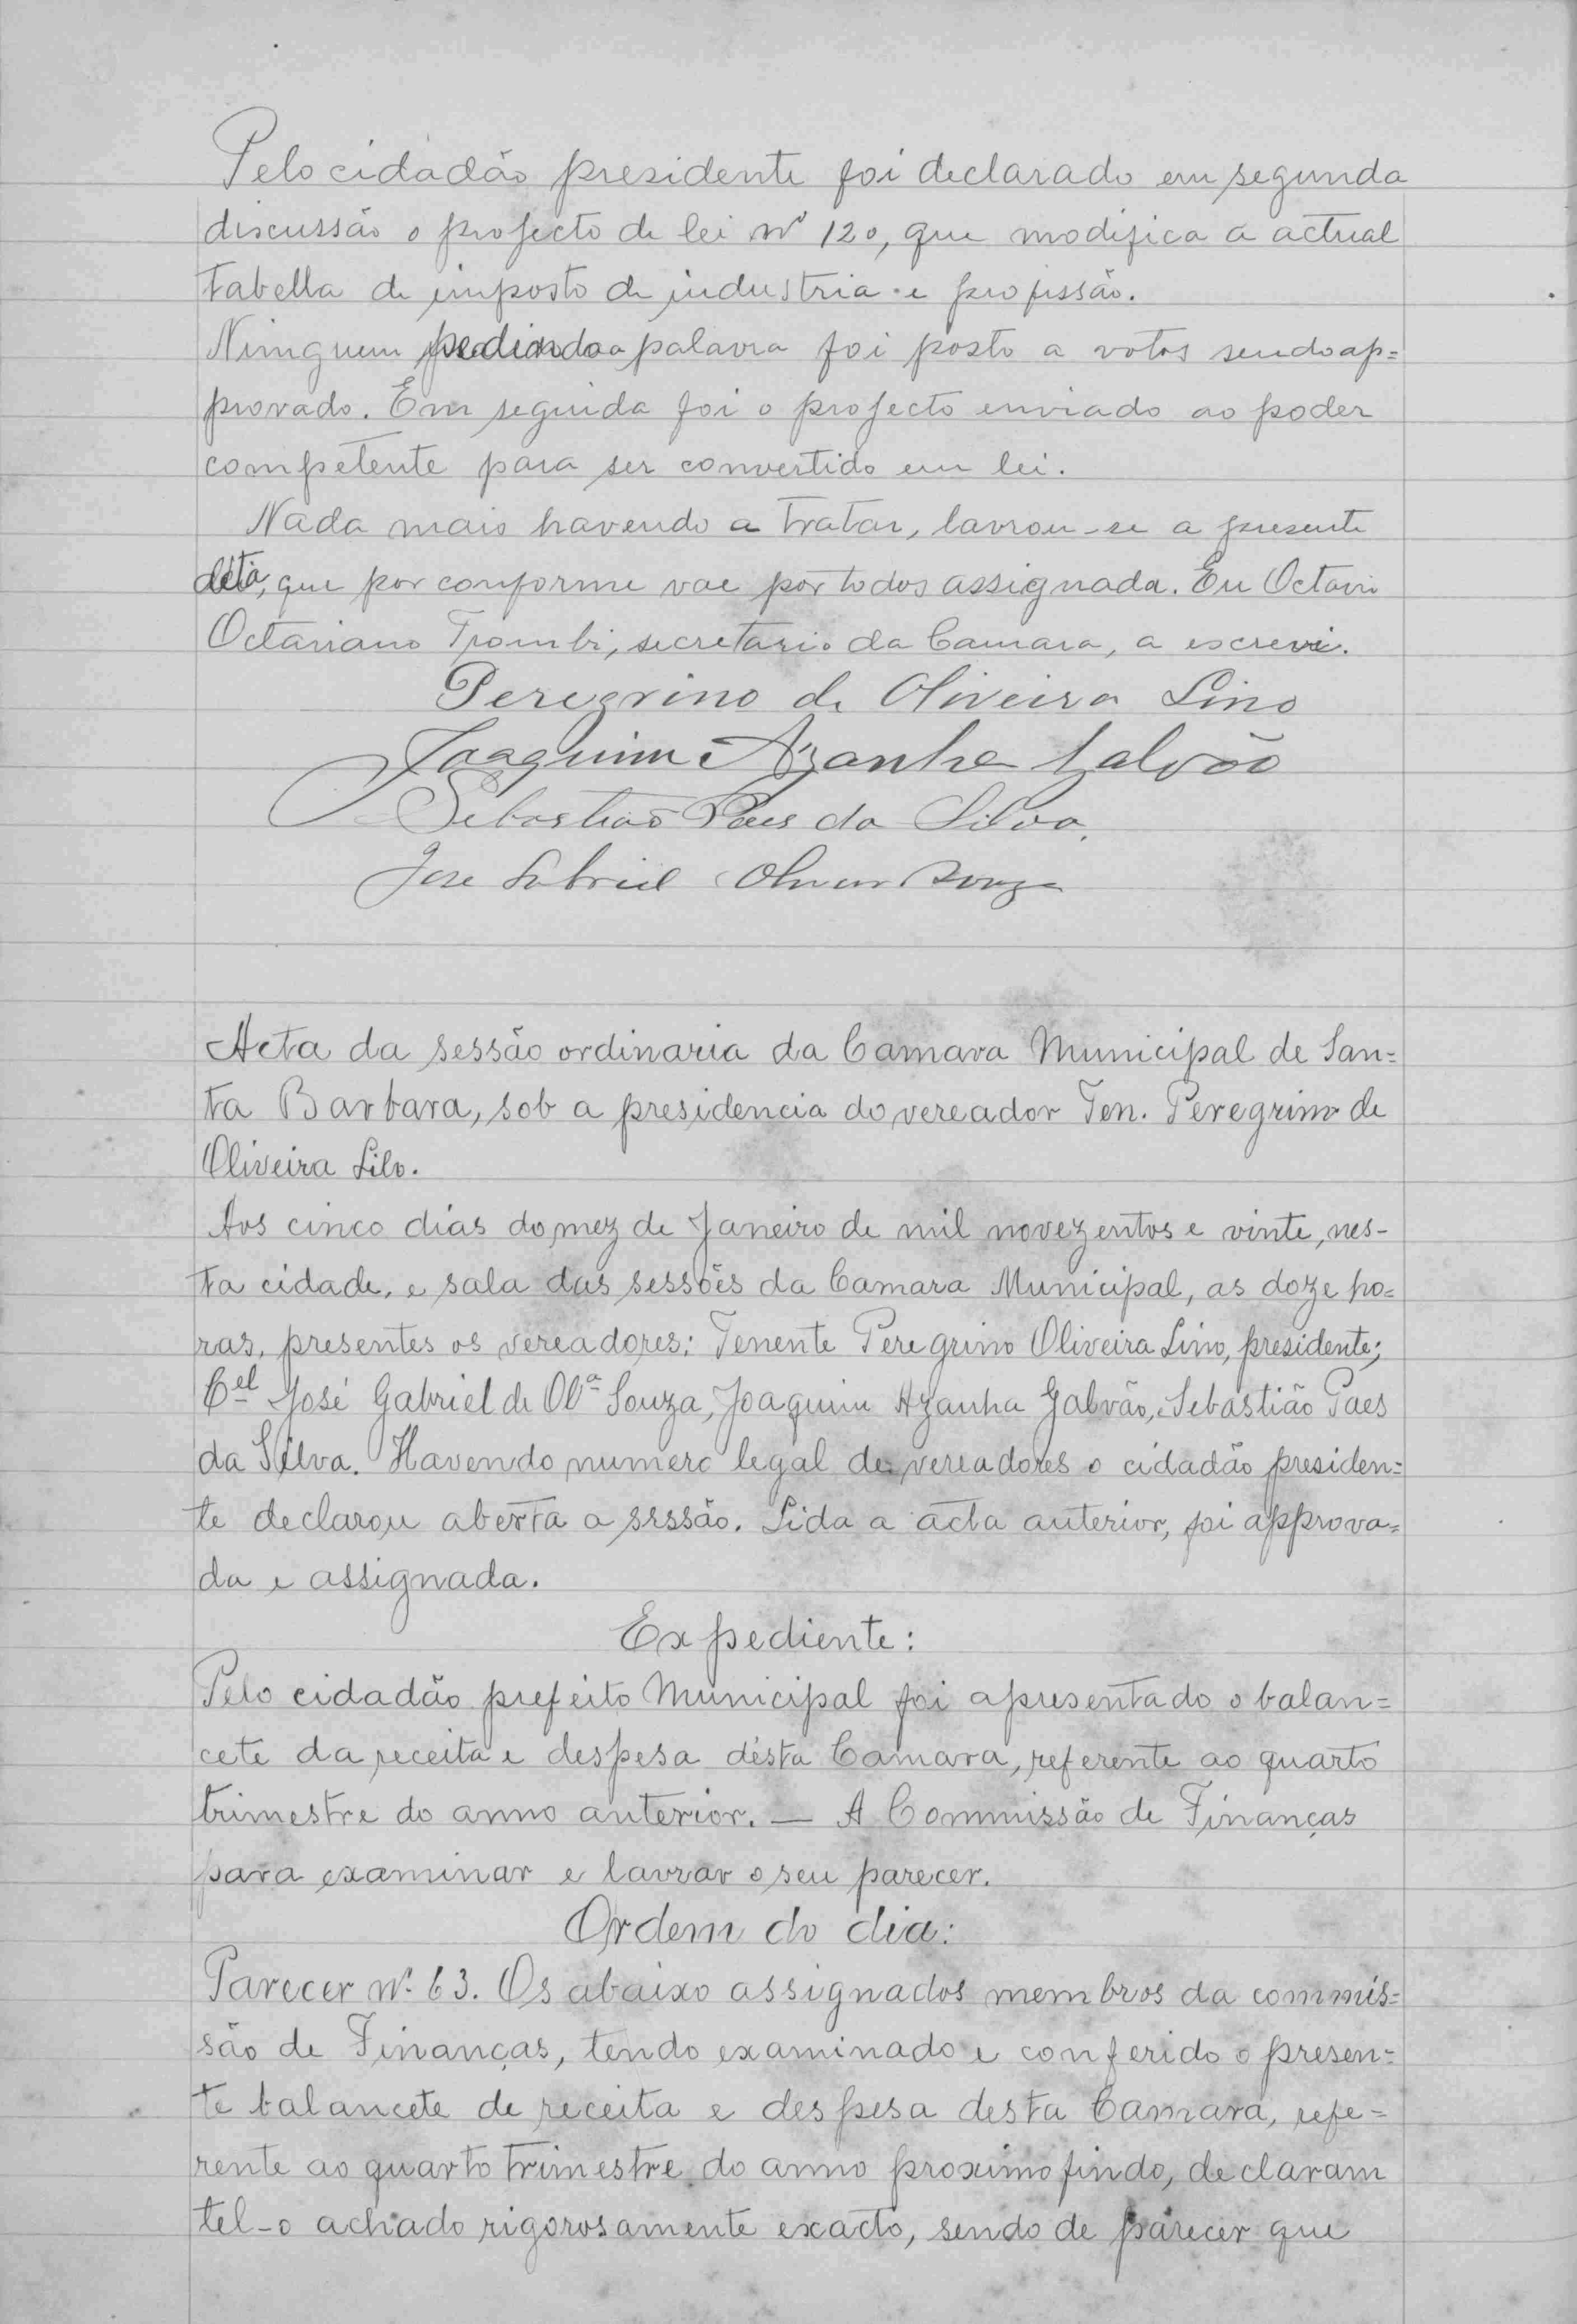 Pelo cidadão presidente foi declarado em segunda
discussão o projecto de lei nº 120, que modifica a actual
tabella de imposto de industria e profissão.
Ninguem pedindo a palavra foi posto a votos sendo ap=
provado. Em seguida foi o projecto enviado ao poder
competente para ser convertido em lei.
Nada mais havendo a tratar, lavrou-se a presente
acta, que por conforme vae por todos assignada. Eu Octavio
Octaviano Trombi, secretario da Camara, a escrevi.
Peregrino de Oliveira Lino
Joaquim Azanha Galvão
Sebastião Paes da Silva.
Jose Gabriel Souza
Acta da sessão ordinaria da Camara Municipal de San=
ta Barbara, sob a presidencia do vereador Ten. Peregrino de
Oliveira Lilo.
Aos cinco dias do mez de Janeiro de mil novezentos e vinte, nes-
ta cidade, e sala das sessões da Camara Municipal, as doze ho=
ras, presentes os vereadores: Tenente Peregrino Oliveira Lino, presidente;
Cel José Gabriel de Olª Souza, Joaquim Azanha Galvão, Sebastião Paes
da Silva. Havendo numero legal de vereadores o cidadão presiden=
te declarou aberta a sessão. Lida a acta anterior, foi approva=
da e assignada.
Expediente:
Pelo cidadão prefeito Municipal foi apresentado o balan=
cete da receita e despesa désta Camara, referente ao quarto
trimestre do anno anterior. — A Commissão de Finanças
para examinar e lavrar o seu parecer.
Ordem do dia:
Parecer nº 63. Os abaixo assignados membros da commis=
são de Finanças, tendo examinado e conferido o presen=
te balancete de receita e despesa desta Camara, refe=
rente ao quarto trimestre do anno proximo findo, declaram
tel-o achado rigorosamente exacto, sendo de parecer que